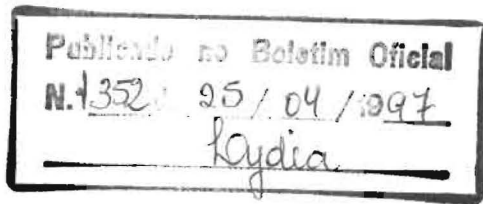 Publicado no Boletim Oficial
N.1352 25 / 04 / 1997
Lydia